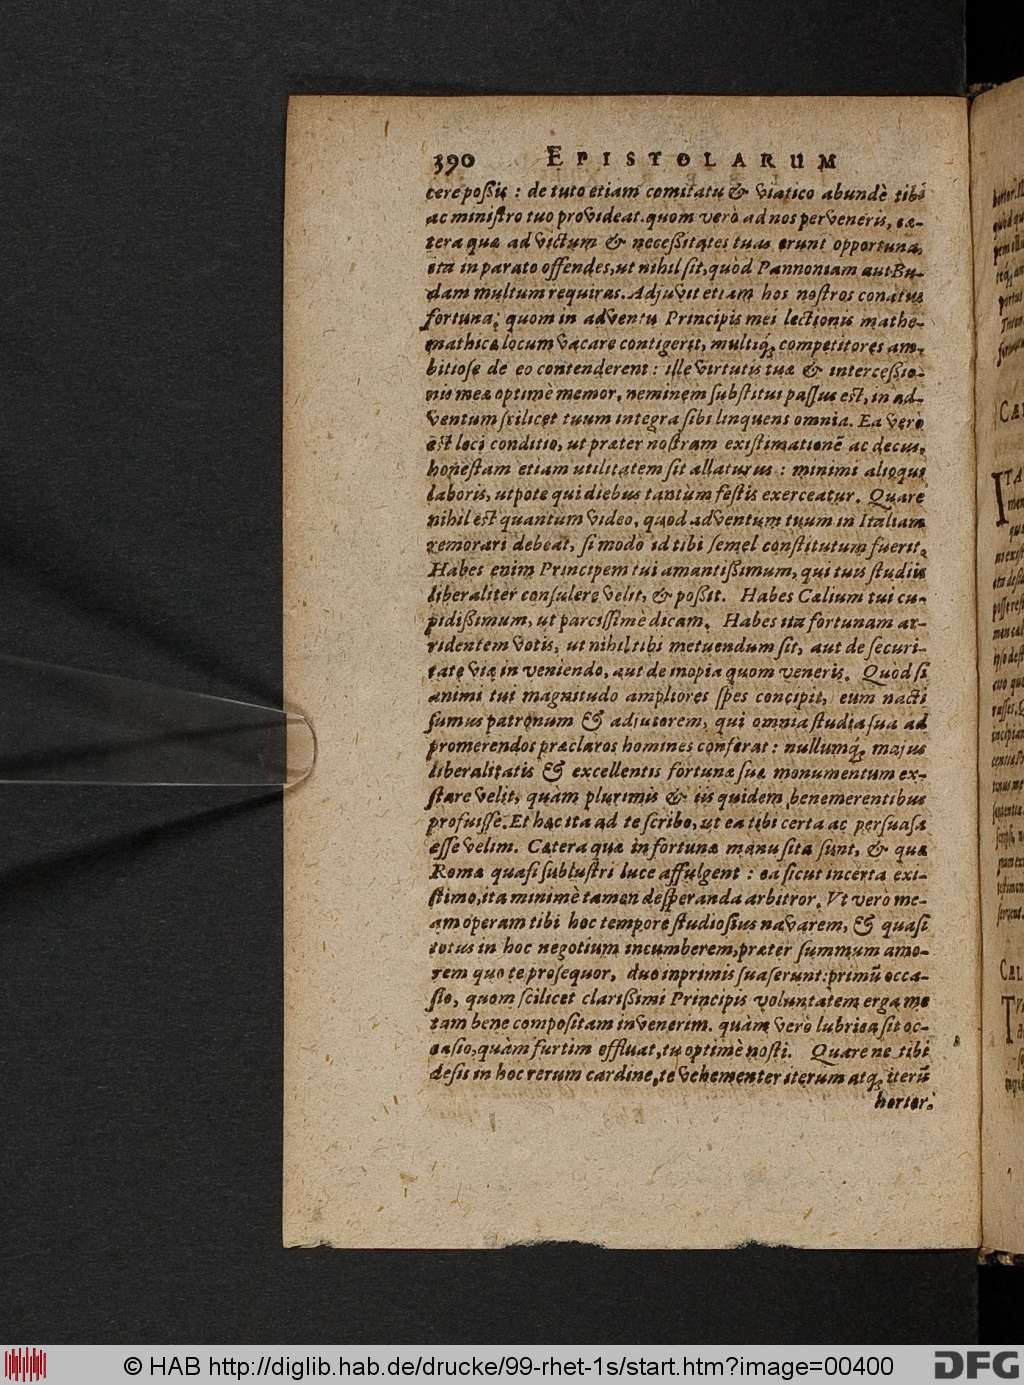 390 EPISTOLARUM
cere poßis : de tuto etiam comitatu & viatico abundè tibi
ac ministro tuo provideat. quom verò ad nos perveneris, cæ-
tera quæ ad victum & necessitates tuas erunt opportuna,
ita in parato offendes, ut nihil sit, quòd Pannoniam aut Bu-
dam multum requiras. Adjuvit etiam hos nostros conatus
fortuna; quom in adventu Principis mei lectionis mathe-
mathicæ locum vacare contigerit, multiq; competitores am-
bitiose de eo contenderent : ille virtutis tuæ & intercessio-
nis meæ optimè memor, neminem substitui passus est, in ad-
ventum scilicet tuum integra sibi linquens omnia. Ea verò
est loci conditio, ut præter nostram existimationē ac decus,
honestam etiam utilitatem sit allaturus : minimi alioqui
laboris, utpote qui diebus tantùm festis exerceatur. Quare
nihil est quantum video, quod adventum tuum in Italiam
remorari debeat, si modo id tibi semel constitutum fuerit.
Habes enim Principem tui amantißimum, qui tuis studiis
liberaliter consulere velit, & poßit. Habes Cælium tui cu-
pidißimum, ut parcissimè dicam. Habes ita fortunam ar-
ridentem votis, ut nihil tibi metuendum sit, aut de securi-
tate viæ in veniendo, aut de inopia quom veneris. Quòd si
animi tui magnitudo ampliores spes concipit, eum nacti
sumus patronum & adjutorem, qui omnia studia sua ad
promerendos præclaros homines conferat : nullumq; majus
liberalitatis & excellentis fortunæ suæ monumentum ex-
stare velit, quàm plurimis & iis quidem benemerentibus
profuisse. Et hæc ita ad te scribo, ut ea tibi certa ac persuasa
esse velim. Cætera quæ in fortunæ manu sita sunt, & quæ
Romæ quasi sublustri luce affulgent : ea sicut incerta exi-
stimo, ita minimè tamen desperanda arbitror. Ut verò me-
am operam tibi hoc tempore studiosius navarem, & quasi
totus in hoc negotium incumberem, præter summum amo-
rem quo te prosequor, duo inprimis suaserunt: primū occa-
sio, quom scilicet clarißimi Principis voluntatem erga me
tam bene compositam invenerim. quàm verò lubrica sit oc-
casio, quàm furtim effluat, tu optimè nosti. Quare ne tibi
desis in hoc rerum cardine, te vehementer iterum atq; iterū
hortor.
© HAB http://diglib.hab.de/drucke/99-rhet-1s/start.htm?image=00400
DFG